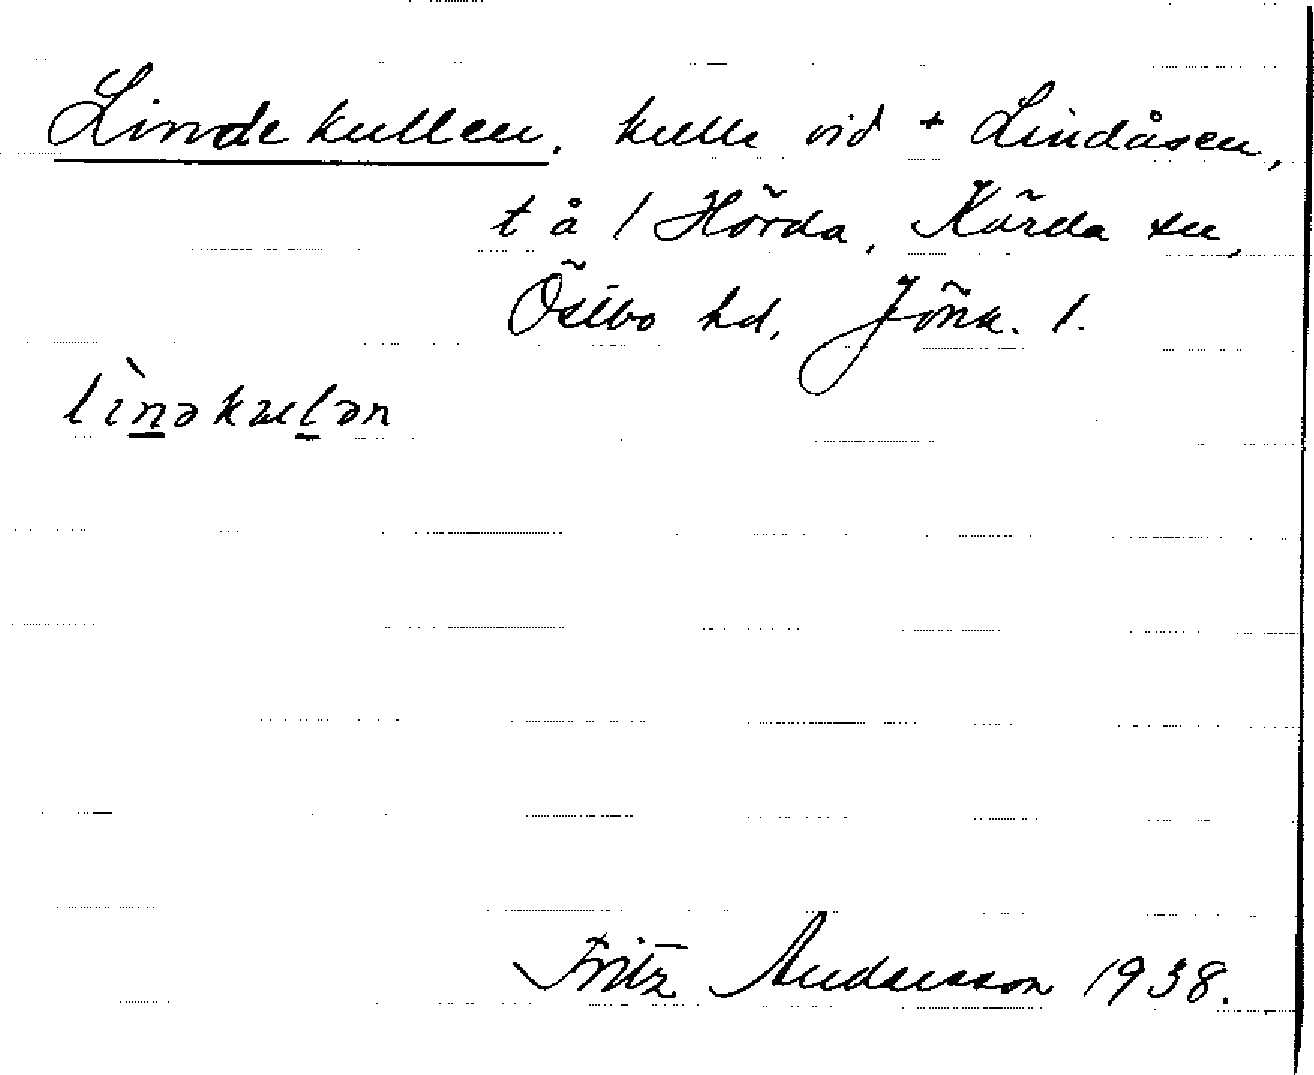 Lindekullen. kulle vid + Lindåsen,
t å / Hörda, Kärda sn,
Östbo hd, Jönk. l.
lìnəkuɫən
Fritz Andersson 1938.